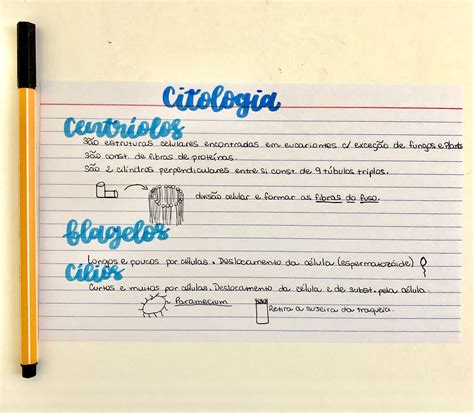 Citologia
Centríolos
São estruturas celulares encontradas em eucariontes c/ exceção de fungos e Plantas
São const. de fibras de proteínas.
São 2 cilindros perpendiculares entre si const. de 9 túbulos triplos.
divisão celular e formar as fibras do fuso.
Flagelos
Longos e poucos por células. Deslocamento da célula (espermatozóide)
Cílios
Curtos e muitos por células. Deslocamento da célula e de subst. pela célula.
Paramecium
Retira a sujeira da traqueia.